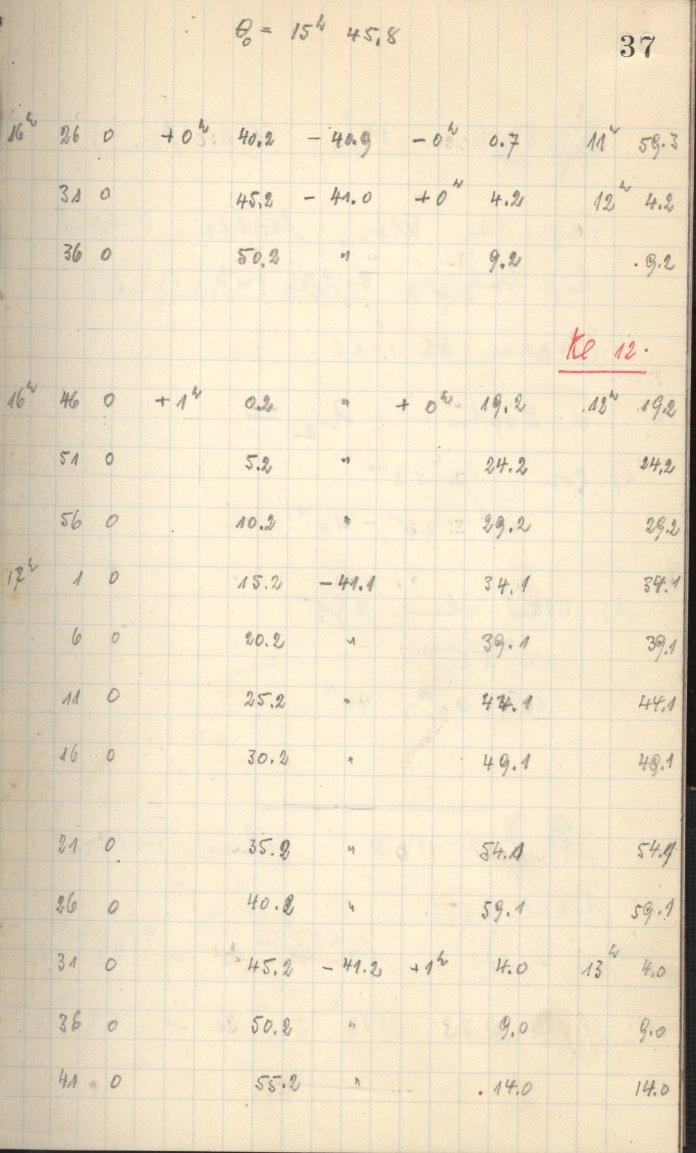 θ₀ = 15ʰ 45,8
37
16ʰ 26 0 +0ʰ 40.2 – 40.9 – 0ʰ 0.7 11ʰ 59.3
31 0 45,2 – 41.0 +0ʰ 4.2 12ʰ 4.2
36 0 50.2 " 9.2 . 9.2
Kl 12.
16ʰ 46 0 +1ʰ 0.2 " + 0ʰ 19.2 12ʰ 19.2
51 0 5.2 " 24.2 24,2
56 0 10.2 " 29.2 29.2
17ʰ 1 0 15.2 – 41.1 34.1 34.1
6 0 20.2 " 39.1 39,1
11 0 25.2 " 44.1 44,1
16 0 30.2 " 49.1 49.1
21 0 35.2 " 54.1 54.1
26 0 40.2 " 59.1 59.1
31 0 45.2 – 41.2 +1ʰ 4.0 13ʰ 4.0
36 0 50.2 " 9.0 9.0
41 0 55.2 " . 14.0 14.0